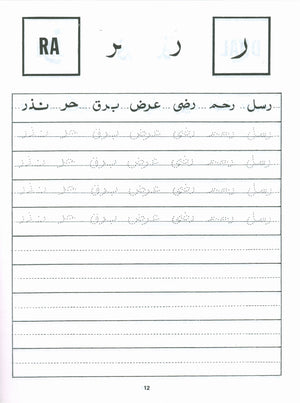 ر ر ـر RA
رسل رحم رضی عرض برق حر نذر
رسل رحم رضی عرض برق حر نذر
رسل رحم رضی عرض برق حر نذر
رسل رحم رضی عرض برق حر نذر
رسل رحم رضی عرض برق حر نذر
12